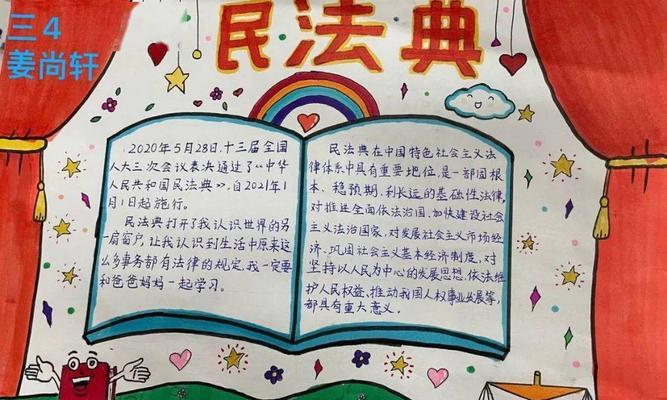 三4
姜尚轩
民法典
2020年5月28日,十三届全国
人大三次会议表决通过了《中华
人民共和国民法典》,自2021年1
月1日起施行。
民法典打开了我认识世界的另
一扇窗户,让我认识到生活中原来这
么多事务都有法律的规定,我一定要
和爸爸妈妈一起学习。
民法典在中国特色社会主义法
律体系中具有重要地位,是一部固根
本、稳预期、利长远的基础性法律,
对推进全面依法治国、加快建设社会
主义法治国家,对发展社会主义市场经
济、巩固社会主义基本经济制度,对
坚持以人民为中心的发展思想、依法维
护人民权益、推动我国人权事业发展等,
都具有重大意义。